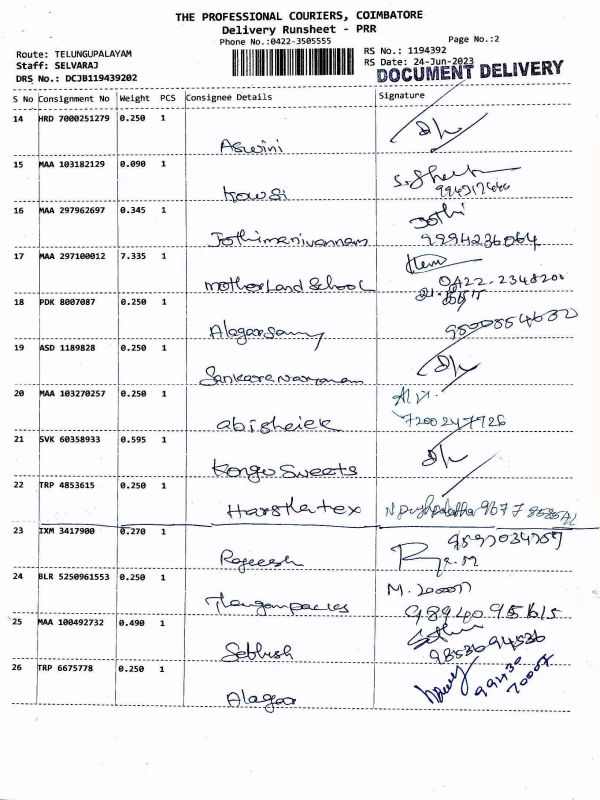 THE PROFESSIONAL COURIERS, COIMBATORE
Delivery Runsheet - PRR
Phone No.:0422-3505555
Page No.:2
Route: TELUNGUPALAYAM
RS No.: 1194392
Staff: SELVARAJ
RS Date: 24-Jun-2023
DRS No.: DCJB119439202
DOCUMENT DELIVERY
S No Consignment No Weight PCS Consignee Details Signature
14 HRD 7000251279 0.250 1
Aswini
15 MAA 103182129 0.090 1
Kowsi
16 MAA 297962697 0.345 1
Jothi
Jothimanivannam 9994236064
17 MAA 297100012 7.335 1
motherland School 0422-2348200
18 PDK 8007087 0.250 1
Alagarsamy
19 ASD 1189828 0.250 1
Sankaranarayanam
20 MAA 103270257 0.250 1
abisheiek 7200247726
21 SVK 60358933 0.595 1
Kongu Sweets
22 TRP 4853615 0.250 1
Harsthatex
23 IXM 3417900 0.270 1
Rajeesh
24 BLR 5250961553 0.250 1
98940 95615
25 MAA 100492732 0.490 1
9853694536
26 TRP 6675778 0.250 1
Alagar
99430
70007